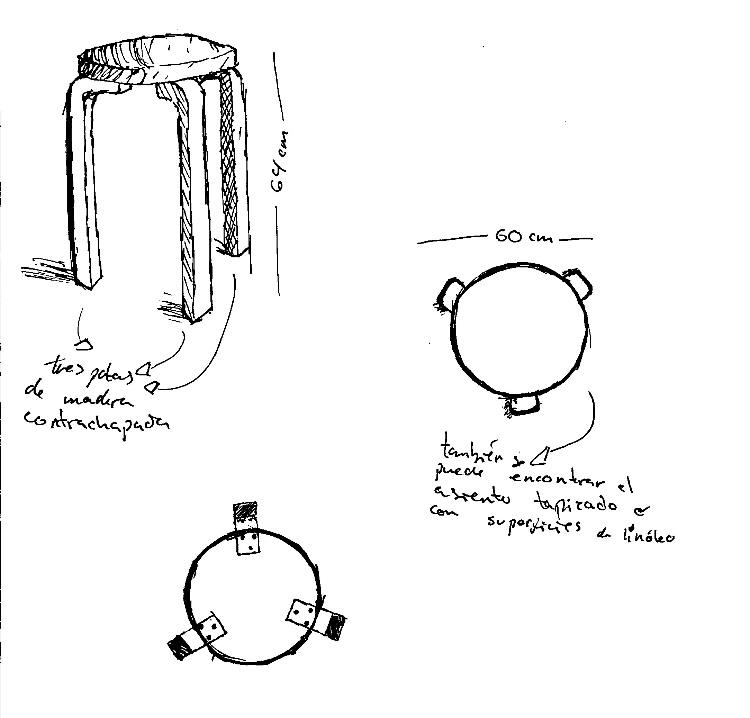 64 cm
60 cm
tres patas
de madera
contrachapada
también se
puede encontrar el
asiento tapizado o
con superficies de linóleo